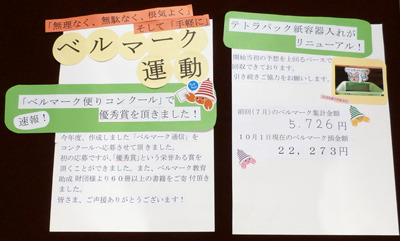 「無理なく、無駄なく、根気よく」
そして「手軽に」
ベルマーク
運動
「ベルマーク便りコンクール」で
速報！
優秀賞を頂きました！
今年度、作成しました「ベルマーク通信」を
コンクールへ応募させて頂きました。
初の応募ですが、「優秀賞」という栄誉ある賞を
頂くことができました。また、ベルマーク教育
助成財団様より６０冊以上の書籍をご寄付頂き
ました。
皆さま、ご声援ありがとうございます！
テトラパック紙容器入れが
リニューアル！
開始当初の予想を上回るペースで
回収できております。
引き続きご協力をお願いします。
前回(７月)のベルマーク集計金額
5.726円
１０月１日現在のベルマーク預金額
22,273円